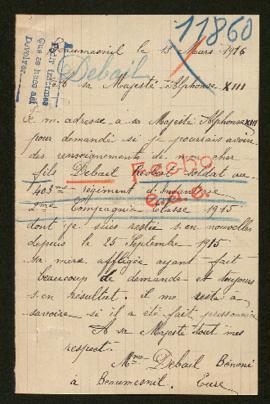 11860
Debail
Beaumesnil le 18 Mars 1916
A sa Majesté Alphonse XIII
Je m adresse à sa Majesté Alphonse XIII
pour demandé si je pourrais avoir
des renseignements de mon cher
fils Debail soldat au
403me régiment d'infanterie
Compagnie Classe 1915
dont je suis restée s'en nouvelles
depuis le 25 Septembre 1915
Sa mère affligée ayant fait
beaucoup de demande et toujours
s'en resultat. il me reste à
savoire si il a été fait prisonnier
A sa Majesté tout mes
respect.
Mme Debail Bénoni
à Beaumesnil. Eure
Fecho